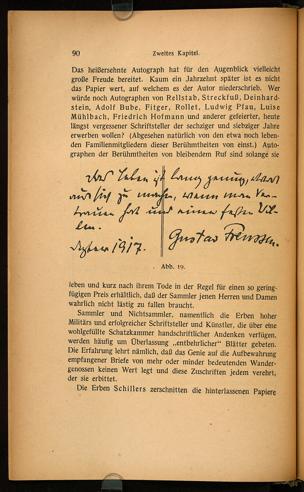 90 Zweites Kapitel.
Das heißersehnte Autograph hat für den Augenblick vielleicht
große Freude bereitet. Kaum ein Jahrzehnt später ist es nicht
das Papier wert, auf welchem es der Autor niederschrieb. Wer
würde noch Autographen von Rellstab, Streckfuß, Deinhard-
stein, Adolf Bube, Fitger, Rollet, Ludwig Pfau, Luise
Mühlbach, Friedrich Hofmann und anderer gefeierter, heute
längst vergessener Schriftsteller der sechziger und siebziger Jahre
erwerben wollen? (Abgesehen natürlich von den etwa noch leben-
den Familienmitgliedern dieser Berühmtheiten von einst.) Auto-
graphen der Berühmtheiten von bleibendem Ruf sind solange sie
Das Leben ist lang genug, etwas
aus sich zu machen, wenn man Ver-
trauen hat und einen festen Wil-
len.
1917. Gustav Frenssen.
Abb. 19.
leben und kurz nach ihrem Tode in der Regel für einen so gering-
fügigen Preis erhältlich, daß der Sammler jenen Herren und Damen
wahrlich nicht lästig zu fallen braucht.
Sammler und Nichtsammler, namentlich die Erben hoher
Militärs und erfolgreicher Schriftsteller und Künstler, die über eine
wohlgefüllte Schatzkammer handschriftlicher Andenken verfügen,
werden häufig um Überlassung „entbehrlicher“ Blätter gebeten.
Die Erfahrung lehrt nämlich, daß das Genie auf die Aufbewahrung
empfangener Briefe von mehr oder minder bedeutenden Wander-
genossen keinen Wert legt und diese Zuschriften jedem verehrt,
der sie erbittet.
Die Erben Schillers zerschnitten die hinterlassenen Papiere